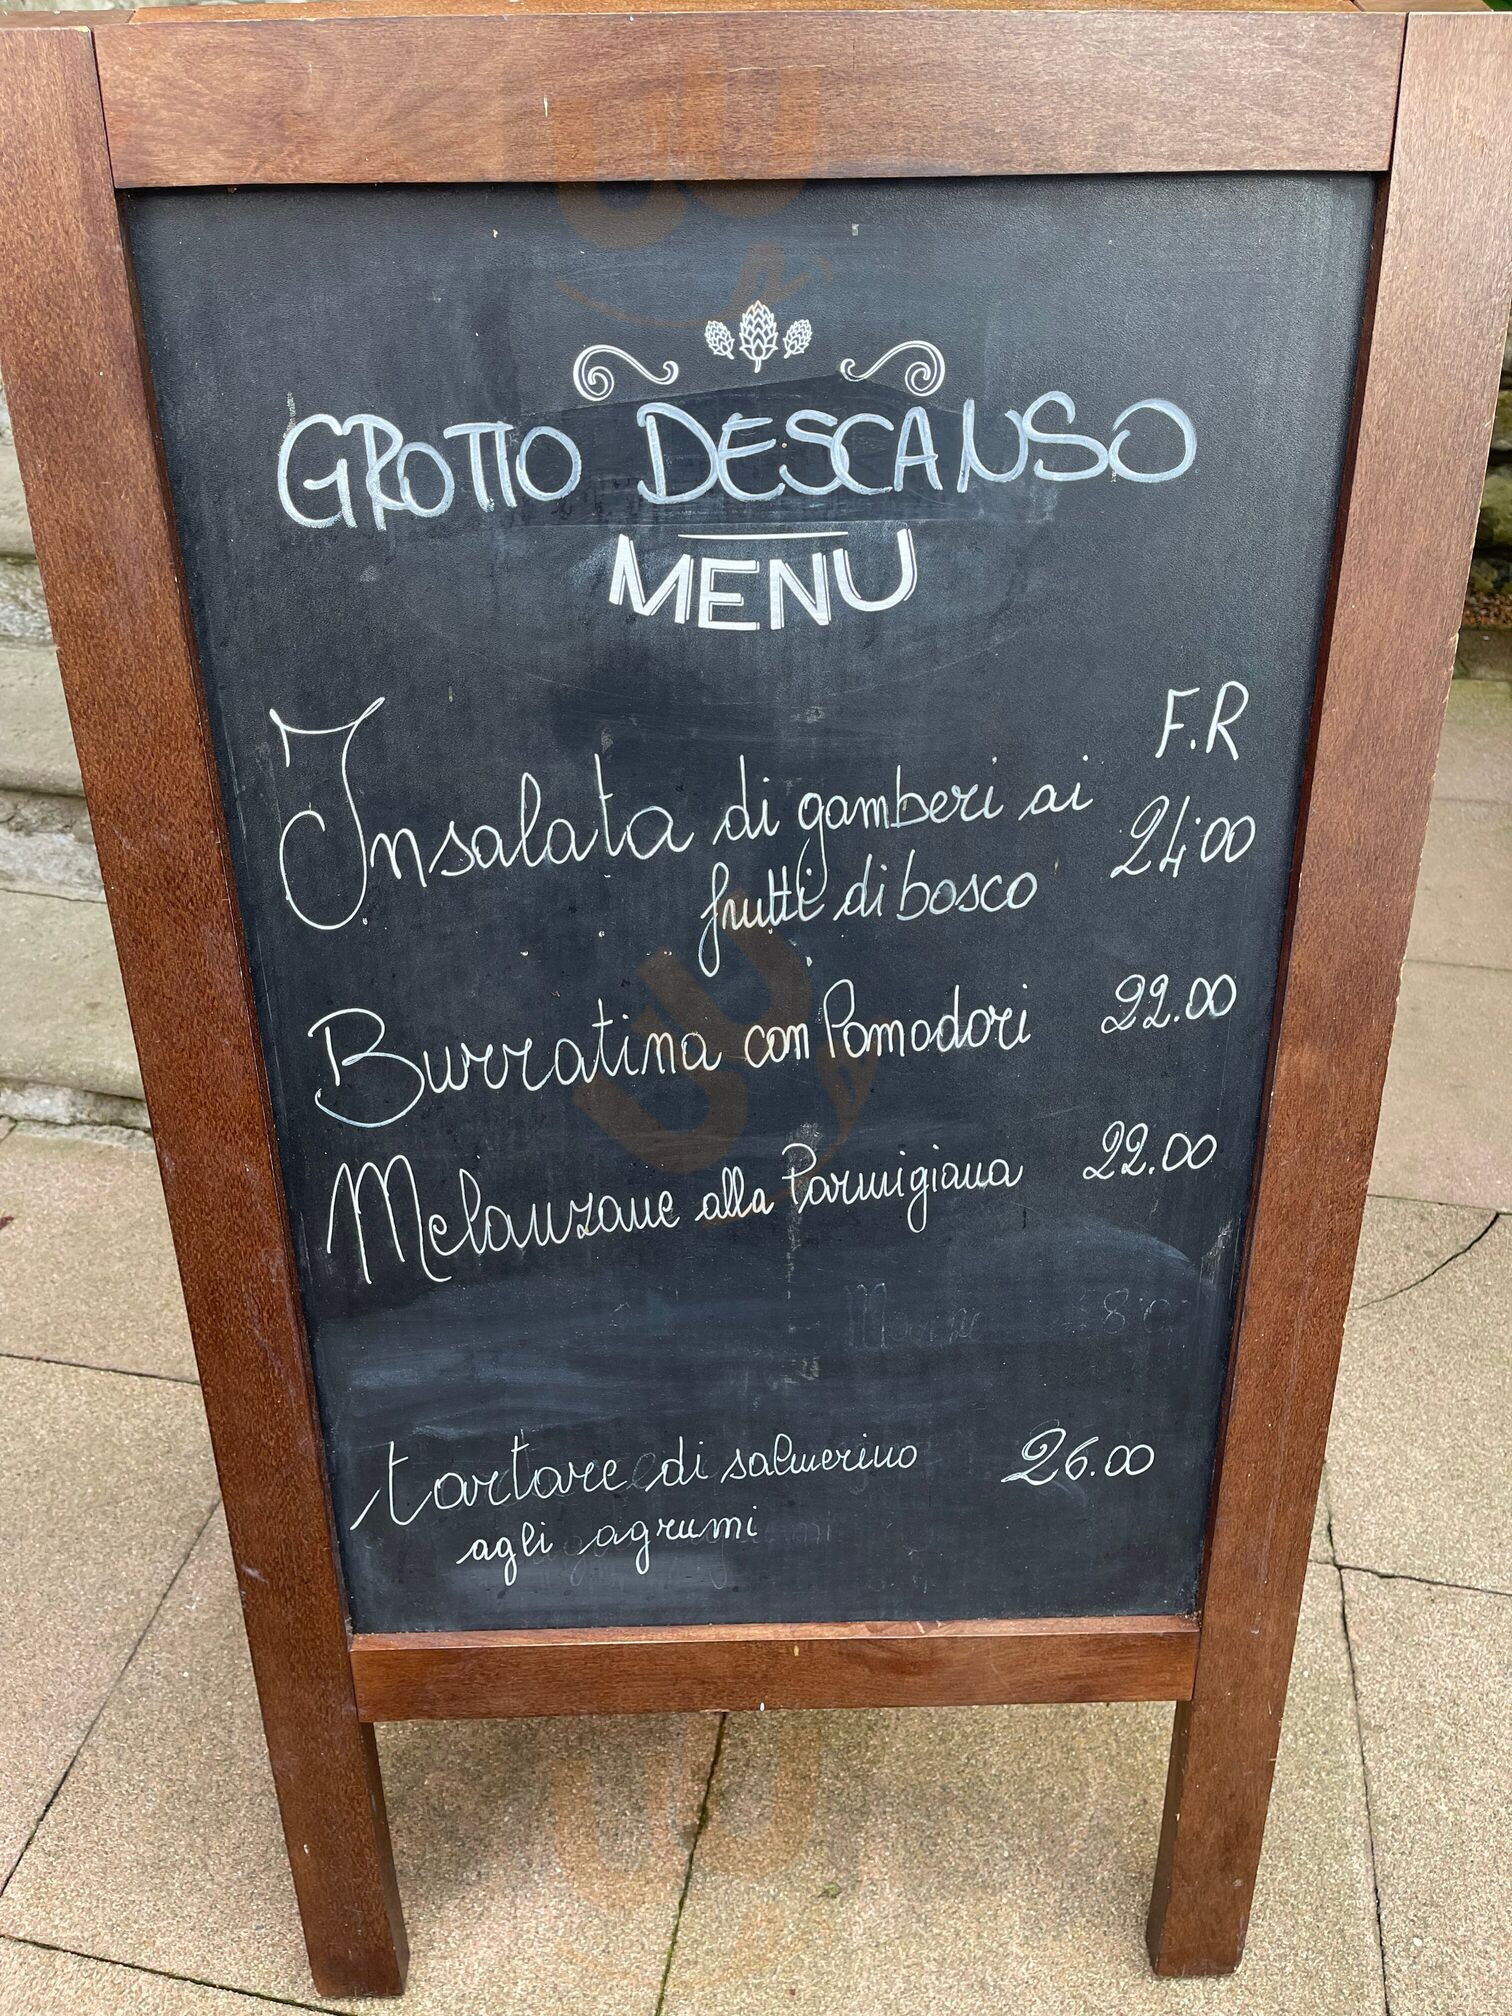 GROTTO DESCANSO
MENU
F.R
Insalata di gamberi ai
frutti di bosco 24.00
Burratina con Pomodori 22.00
Melanzane alla Parmigiana 22.00
tartare di salmerino 26.00
agli agrumi